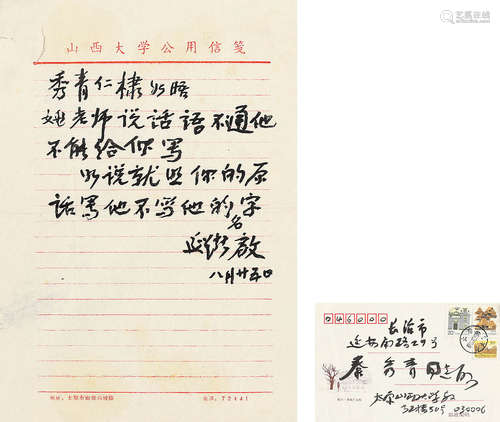 山西大学公用信笺
秀青仁棣如晤
姚老师说话语不通他
不能给你写
如说就照你的原
话写他不写他的名字
启
八月廿五日
地址：太原市
电话：72441
046000
长治市
延安南路29号
秦秀青同志收
太原山西大学
030006